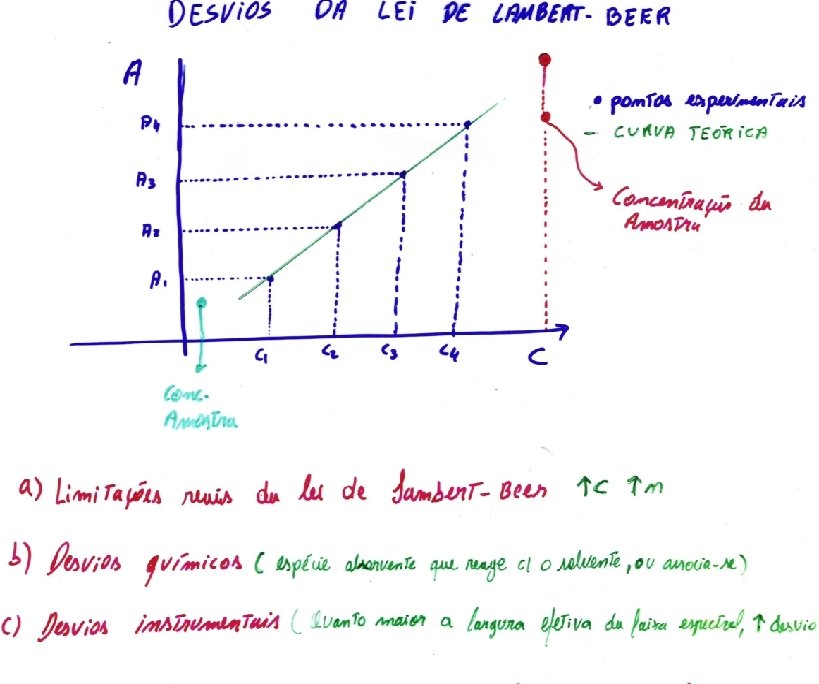 DESVIOS DA LEI DE LAMBERT-BEER
A
• pontos experimentais
- CURVA TEÓRICA
A4
A3
Concentração da
Amostra
A2
A1
C1 C2 C3 C4 C
Conc.
Amostra
a) Limitações reais da lei de Lambert-Beer ↑C ↑n
b) Desvios químicos (espécie absorvente que reage c/ o solvente, ou associa-se)
c) Desvios instrumentais (Quanto maior a largura efetiva da faixa espectral, ↑ desvio